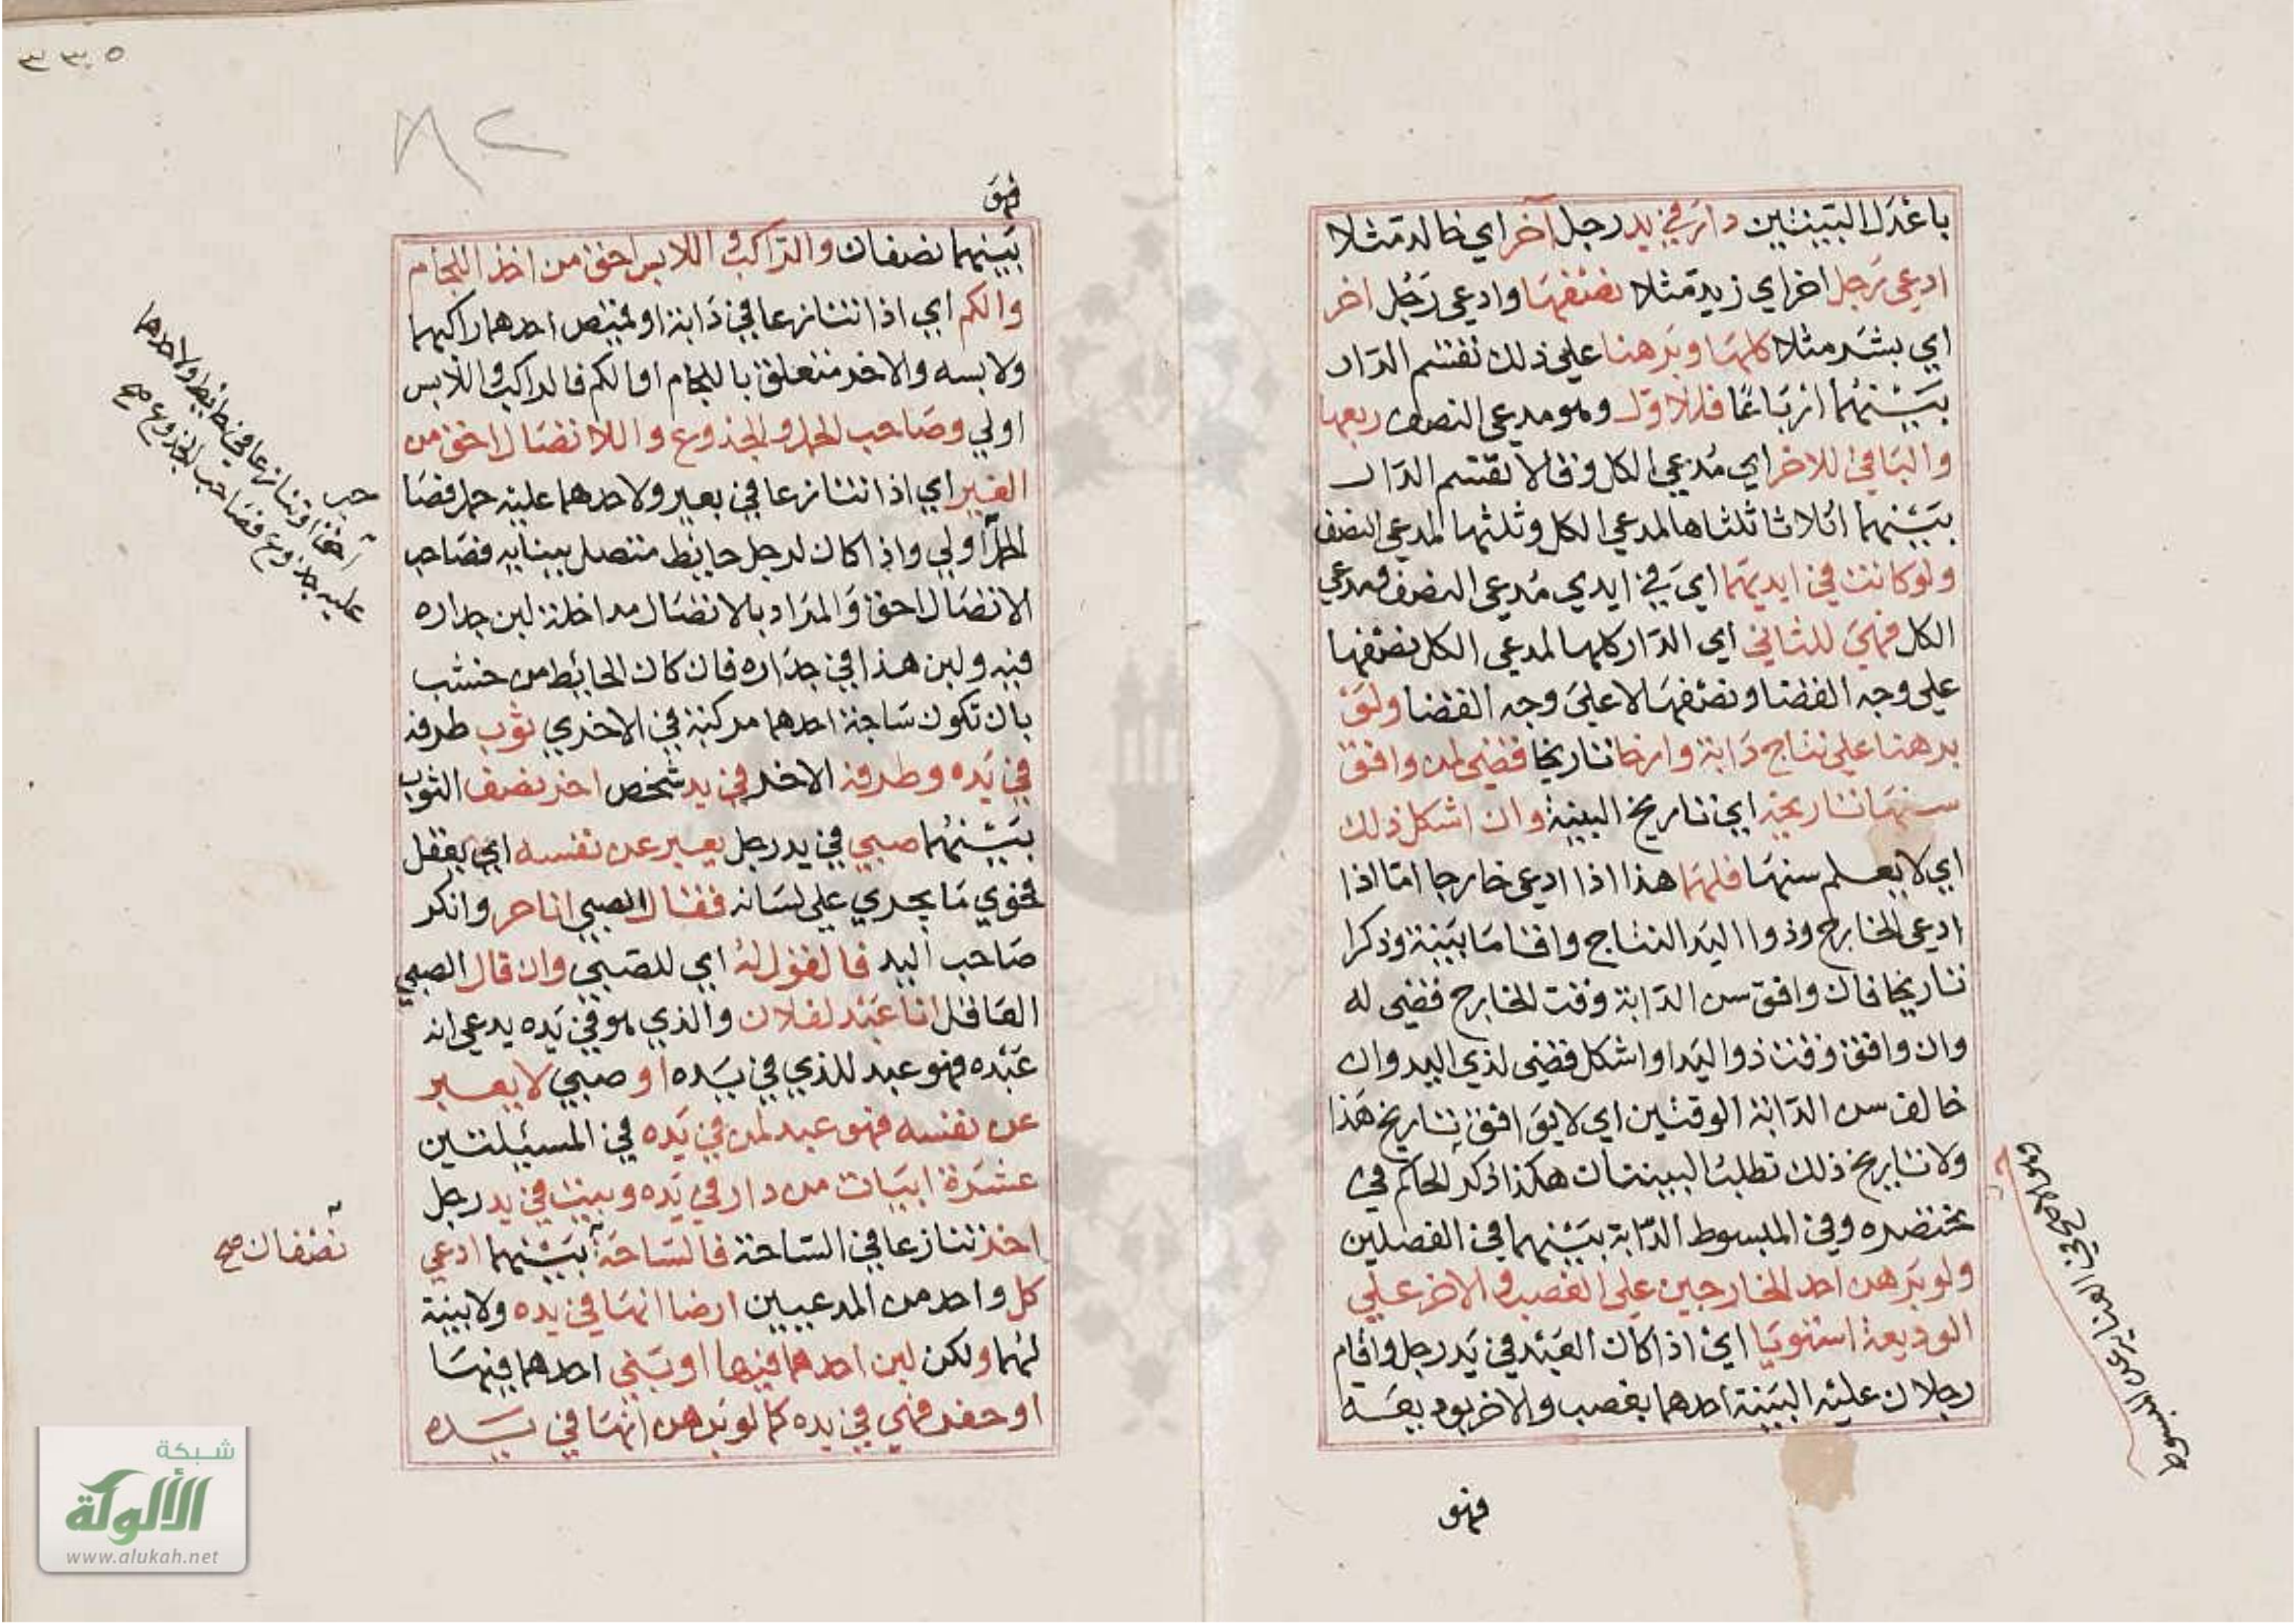 باعدل البينتين دار في يد رجل آخر اي خالد مثلا
ادعى رجل اخر اي زيد مثلا نصفها وادعى رجل اخر
اي بشر مثلا كلها وبرهنا على ذلك تقسم الدار
بينهما ارباعا فللاول وهو مدعي النصف ربعها
والباقي للاخر اي مدعي الكل وقالا تقسم الدار
بينهما اثلاثا ثلثاها لمدعي الكل وثلثها لمدعي النصف
ولو كانت في ايديهما اي في ايدي مدعي النصف ومدعي
الكل فهي للثاني اي الدار كلها لمدعي الكل نصفها
على وجه القضا ونصفها لا على وجه القضا ولو
برهنا على نتاج دابة وارخا تاريخا فقضي لمن وافق
سنها تاريخه اي تاريخ البينة وان اشكل ذلك
اي لا يعلم سنها فلهما هذا اذا ادعى خارجا اما اذا
ادعى الخارج وذوا اليد النتاج واقاما بينة وذكرا
تاريخا فان وافق سن الدابة وقت الخارج فقضي له
وان وافق وقت ذو اليد او اشكل فقضي لذي اليد وان
خالف سن الدابة الوقتين اي لا يوافق تاريخ هذا
ولا تاريخ ذلك تطلب البينتان هكذا ذكر الحاكم في
مختصره وفي المبسوط الدابة بينهما في الفصلين
ولو برهن احد الخارجين على الغصب والاخر على
الوديعة استويا اي اذا كان العبد في يد رجل واقام
رجلان عليه البينة احدهما بغصب والاخر بوديعة
فهو
فهو
بينهما نصفان والراكب واللابس احق من اخذ اللجام
والكم اي اذا تنازعا في دابة او قميص احدهما راكبها
ولابسه والاخر متعلق باللجام او الكم فالراكب واللابس
اولى وصاحب الحمل والجذوع واللاتصال احق من
الغير اي اذا تنازعا في بعير ولاحدهما عليه حمل فصا
الحمل اولى واذا كان لرجل حايط متصل ببنايه فصاحب
الاتصال احق والمراد بالاتصال مداخلة لبن جداره
فيه ولبن هذا في جداره فان كان الحائط من خشب
بان تكون ساجة احدهما مركبة في الاخرى ثوب طرفه
في يده وطرفه الاخر في يد شخص اخر نصف الثوب
بينهما صبي في يد رجل يعبر عن نفسه اي يعقل
فحوى ما يجري على لسانه فقال الصبي انا حر وانكر
صاحب اليد فالقول له اي للصبي وان قال الصبي
العاقل انا عبد لفلان والذي هو في يده يدعي انه
عبده فهو عبد للذي في يده او صبي لا يعبر
عن نفسه فهو عبد لمن في يده في المسئيلتين
عشرة ابيات من دار في يده وبيت في يد رجل
اخر تنازعا في الساحة فالساحة بينهما ادعى
كل واحد من المدعيين ارضا انها في يده ولا بينة
لهما ولكن لبن احدهما فيها او بنى احدهما فيها
او حفر فهي في يده كما لو برهن انها في يده
احق او تنازعا في حايط ولاحدهما
عليه جذوع فصاحب الجذوع صح
نصفان صح
٣٣٥
شبكة
الألوكة
www.alukah.net